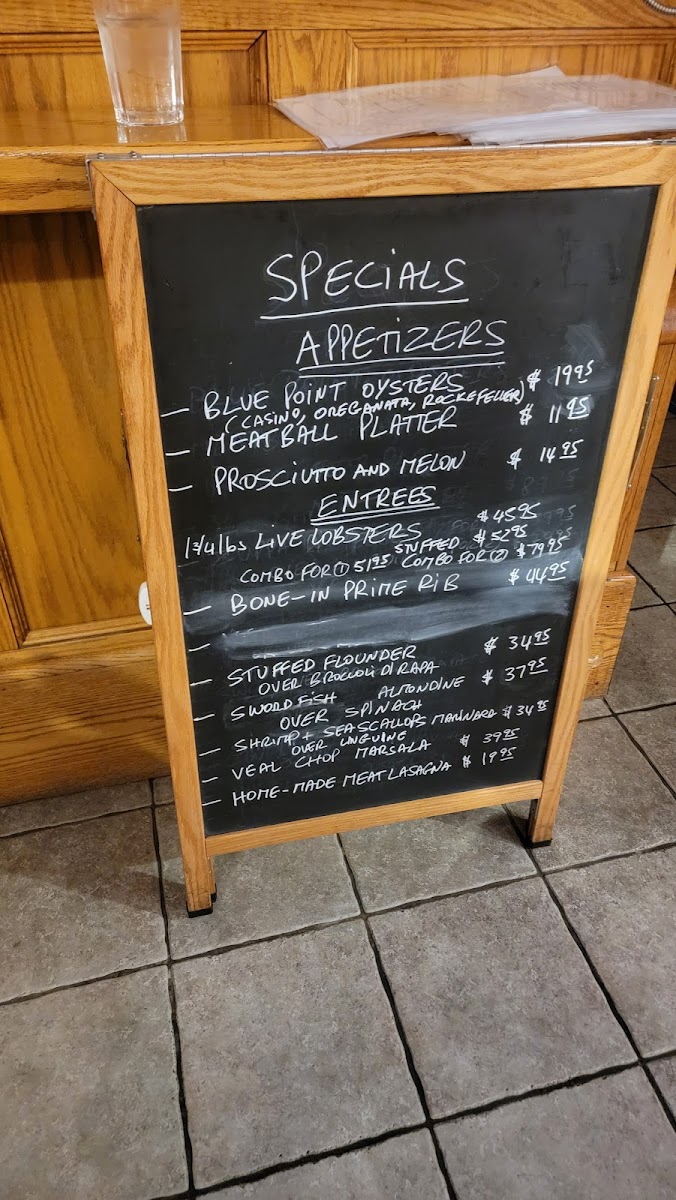 SPECIALS
APPETIZERS
— BLUE POINT OYSTERS $ 19 95
(CASINO, OREGANATA, ROCKEFELLER)
— MEATBALL PLATTER $ 11 95
— PROSCIUTTO AND MELON $ 14 95
ENTREES
1 3/4 lbs LIVE LOBSTERS $ 45 95
STUFFED $ 52 95
COMBO FOR ① 51 95 COMBO FOR ② $ 79 95
— BONE-IN PRIME RIB $ 44 95
—
— STUFFED FLOUNDER $ 34 95
OVER BROCCOLI DI RAPA
— SWORDFISH ALMONDINE $ 37 95
OVER SPINACH
— SHRIMP + SEA SCALLOPS MARINARA $ 34 95
OVER LINGUINE
— VEAL CHOP MARSALA $ 39 95
— HOME-MADE MEAT LASAGNA $ 19 95